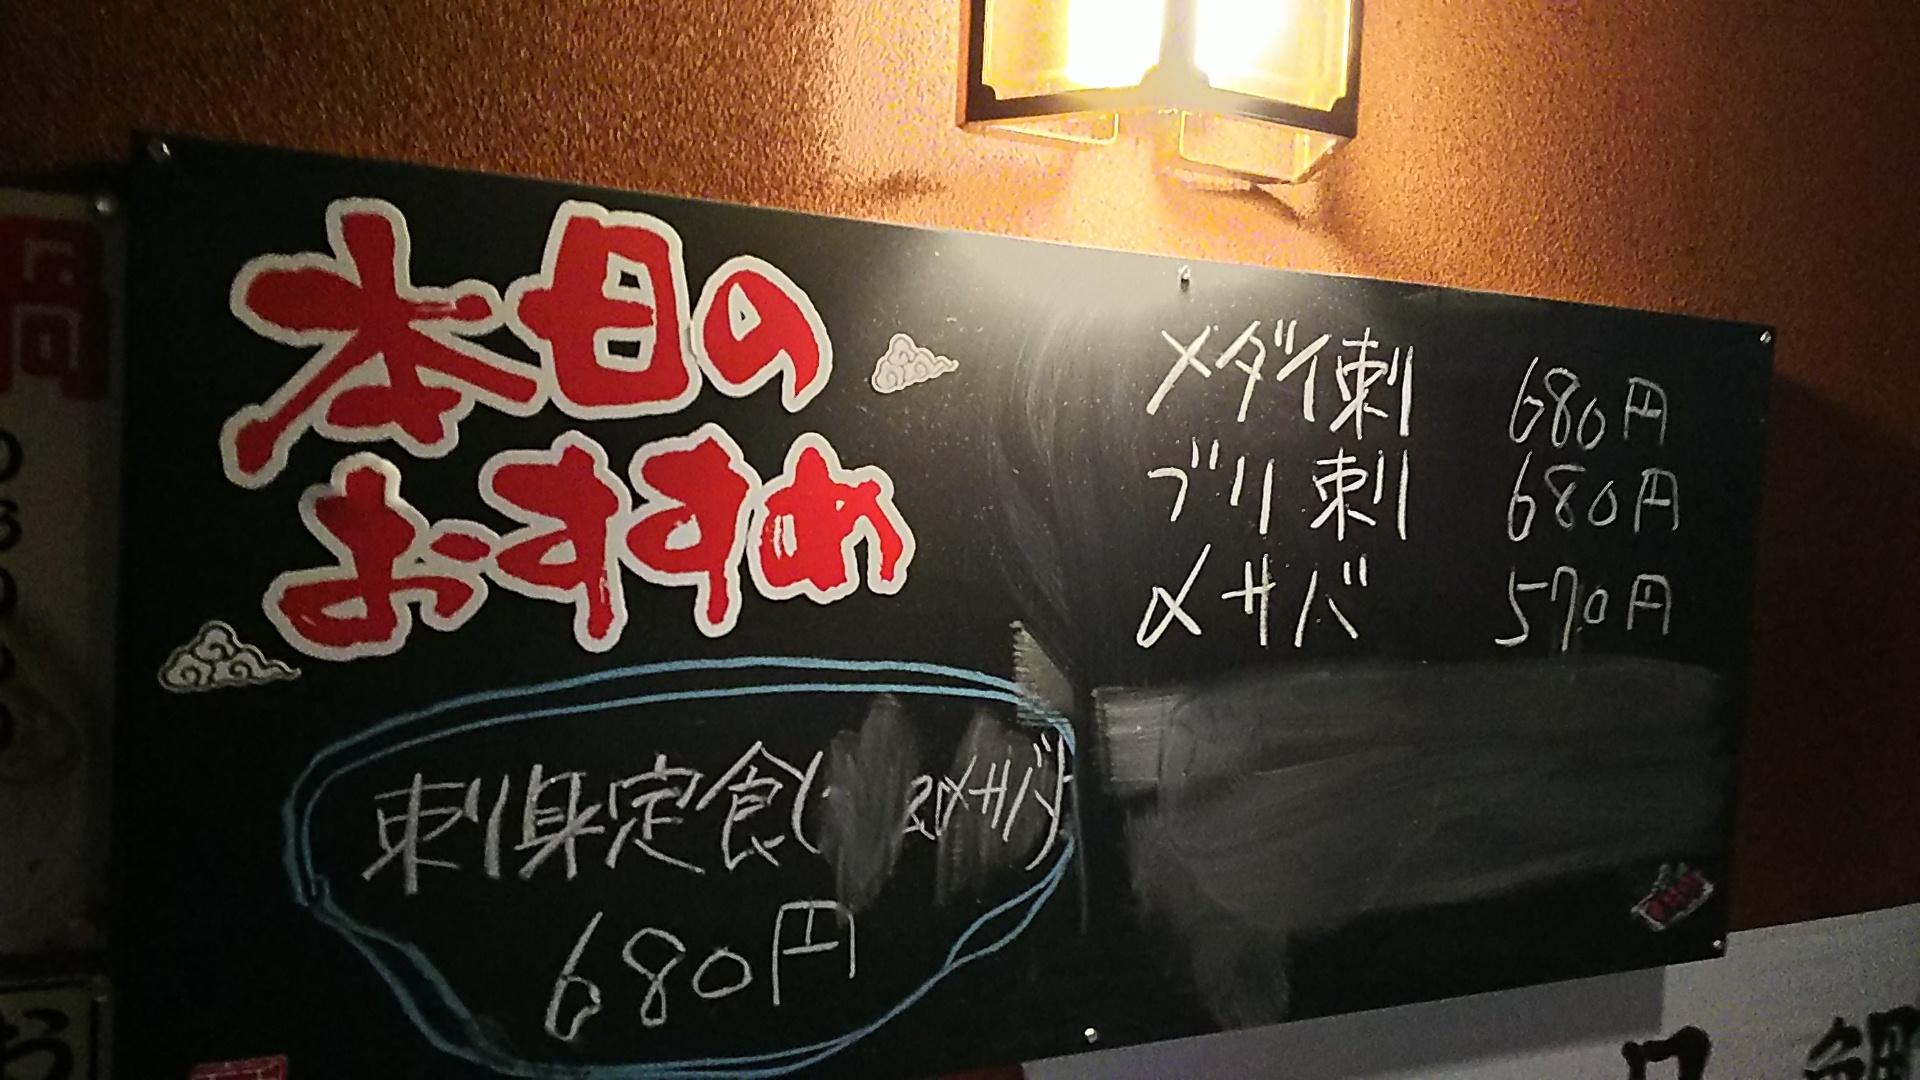 本日の
おすすめ
メダイ刺 680円
ブリ刺 680円
〆サバ 570円
刺身定食( 〆サバ)
680円